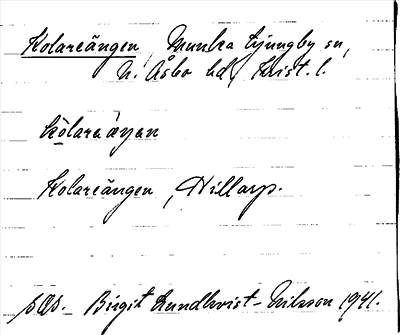 Kolareängen, Munka Ljungby sn,
N. Åsbo hd, Krist. l.
kolareäŋen
Kolareängen, Hillarp.
Birgit Lundkvist-Nilsson 1941.